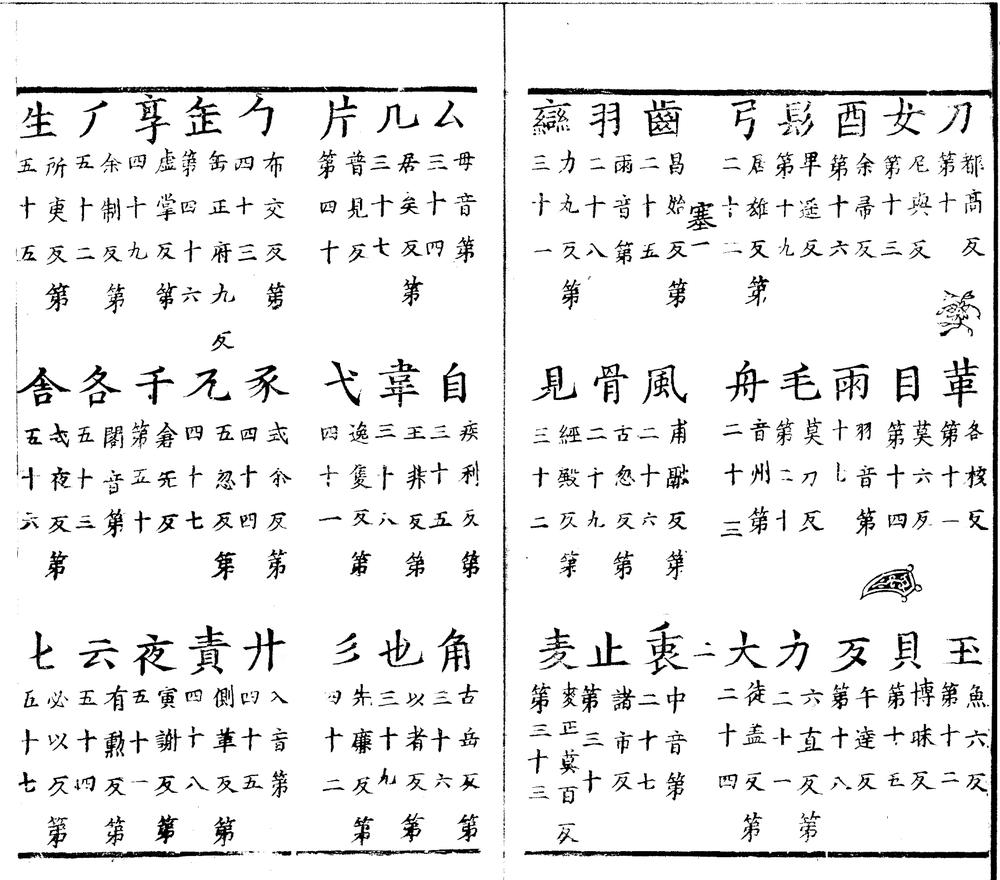 刀都高反第十 革各核反第十一 玉魚六反第十二
女尼與反第十三 目莫六反第十四 貝博昧反第十五
酉余帚反第十六 雨羽音第十七 歹午達反第十八
髟畢遥反第十九 毛莫刀反第二十 力六直反第二十一
弓居雄反第二十二 舟音州第二十三 大徒盖反第二十四
塞一 二
齒昌始反第二十五 風甫融反第二十六 衷中音第二十七
羽雨音第二十八 骨古忽反第二十九 止諸市反第三十
䜌力丸反第三十一 見經殿反第三十二 麦麥正莫百反第三十三
厶毋音第三十四 自疾利反第三十五 角古岳反第三十六
几居矣反第三十七 韋王非反第三十八 也以者反第三十九
片普見反第四十 弋逸隻反第四十一 彡先廉反第四十二
勹布交反第四十三 豕式尒反第四十四 廿入音第四十五
缶正府九反第四十六 兀五忽反第四十七 責側革反第四十八
享虚掌反第四十九 千倉先反第五十 夜寅謝反第五十一
𠂆余制反第五十二 各閣音第五十三 云有勳反第五十四
生所庚反第五十五 舎式夜反第五十六 七必以反第五十七